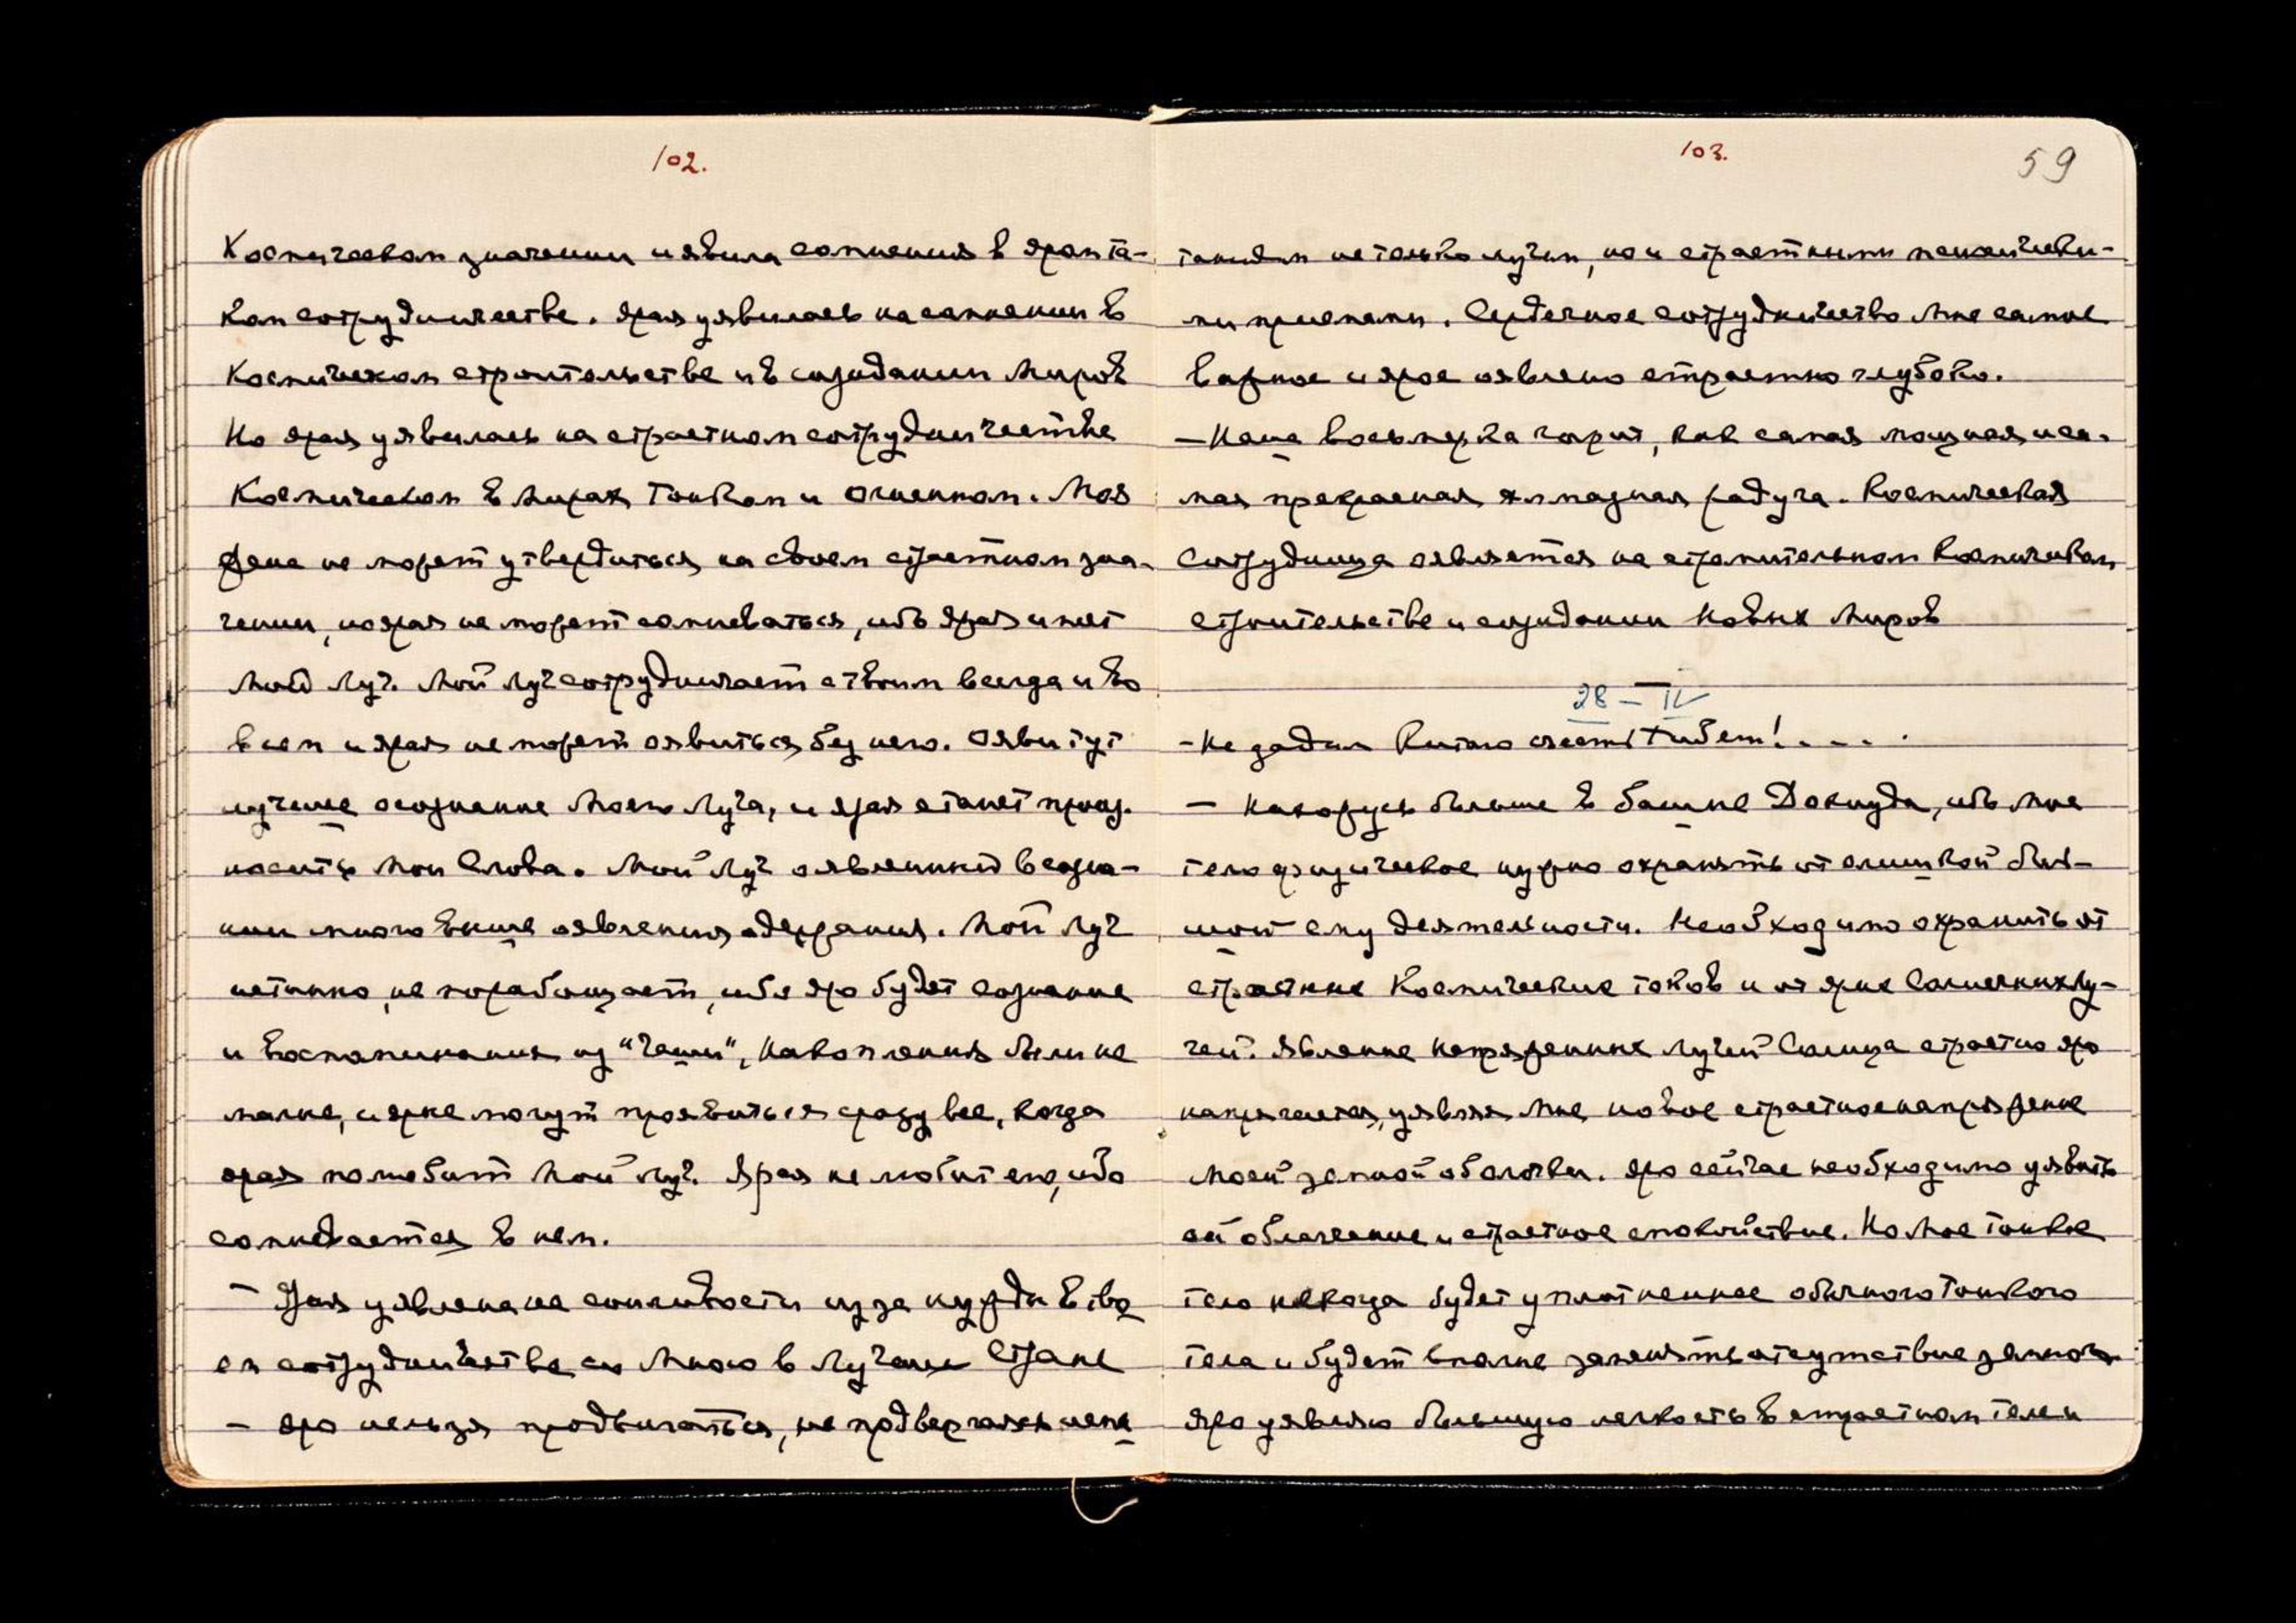 102.
Космическом значении и явила сомнения в яром та-
ком сотрудничестве. Ярая уявилась на сомнении в
Космическом строительстве и в созидании Миров
Но ярая уявилась на страстном сотрудничестве
Космическом в Мирах Тонком и Огненном. Моя
Жена не может утвердиться на своем страстном зна-
чении, но ярая не может сомневаться, ибо ярая имеет
Мой Луч. Мой Луч сотрудничает с твоим всегда и во
всем и ярая не может явиться без него. Ояви тут
лучшее осознание Моего Луча, и ярая станет произ-
носить Мои Слова. Мой Луч оявленный в созна-
нии много выше оявления одержания. Мой Луч
истинно, не порабощает, ибо яро будет сознание
и воспоминания из "Чаши", Накопления были не
малые, и ярые могут проявиться сразу все, когда
ярая полюбит Мой Луч. Ярая не любит его, ибо
сомневается в нем.
– Ярая уявлена на сонливости из за нужды в тво
ем сотрудничестве со Мною в Лучшей Стране
– яро нельзя продвигаться, не подвергаясь
103.
59
не только лучом, но и страстными
ми приемами. Сердечное сотрудничество Мне самое
важное и ярое оявлено страстно глубоко.
– Наша восьмерка горит, как самая мощная и са-
мая прекрасная алмазная радуга. Космическая
Сотрудница оявляется на строительном Космическом
строительстве и созидании Новых Миров
28 – IV
– Не дадим Китаю счесть Тибет!....
– Нахожусь больше в башне Докиуда, ибо Мне
тело физическое нужно охранять от слишком боль-
шой ему деятельности. Необходимо охранить от
страстных Космических токов и от ярых Солнечных Лу-
чей. Явление напряженных лучей Солнца страстно яро
напрягается, уявляя Мне новое страстное напряжение
Моей земной оболочки. яро сейчас необходимо уявить
ей облегчение и страстное спокойствие. Но Мое тонкое
тело некогда будет уплотненнее обычного Тонкого
тела и будет вполне заменять отсутствие земного
Яро уявляю большую легкость в страстном теле и